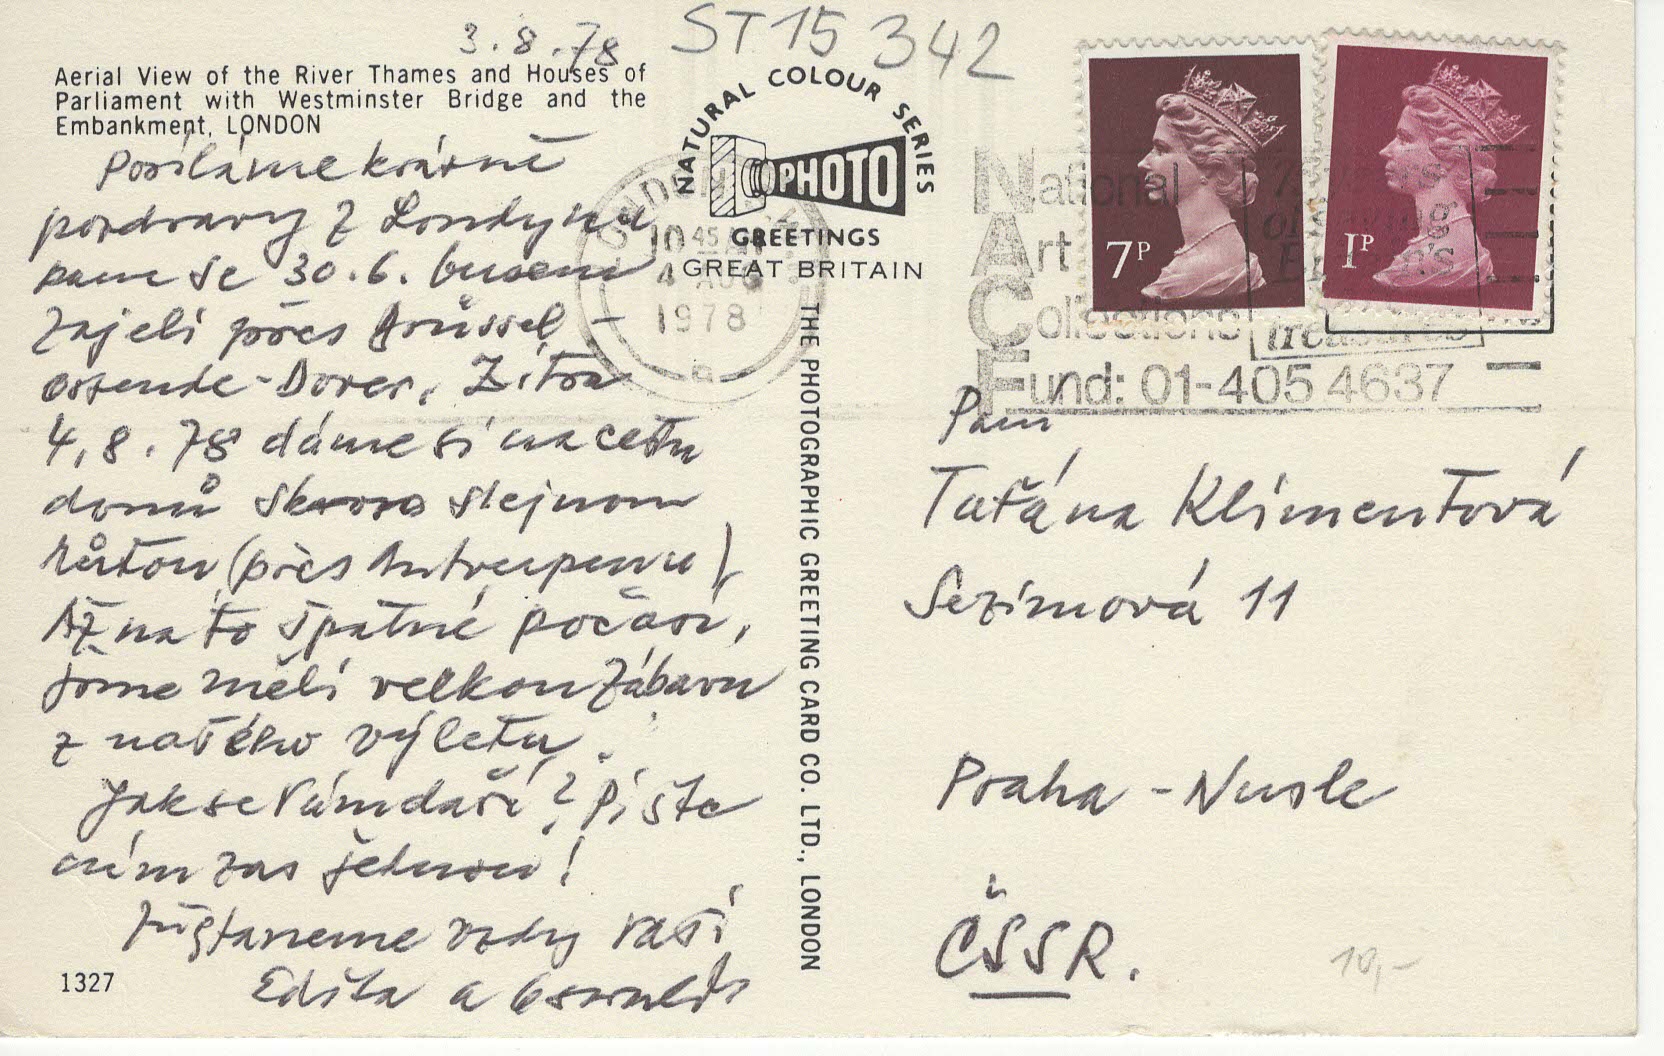 3.8.78
ST15 342
Aerial View of the River Thames and Houses of
Parliament with Westminster Bridge and the
Embankment, LONDON
Posíláme krásné
pozdravy z Londýna
kam se 30.6. busem
zajeli přes Brüssel -
Ostende-Dover. Zítra
4.8.78 dáme si na cestu
domů skoro stejnou
růtou (přes Antverpenu)
Až na to špatné počasí,
jsme měli velkou zábavu
z našého výletu.
Jak se Vám daří? Píšte
nám zas jednou!
Zůstaneme vždy Vaši
Edita a Oswald
1327
NATURAL COLOUR SERIES
PHOTO
GREETINGS
GREAT BRITAIN
THE PHOTOGRAPHIC GREETING CARD CO. LTD., LONDON
LONDON
10 45 AM
4 AUG
1978
7P
1P
National
Art
Collections
Fund: 01-405 4637
treasures
Paní
Taťána Klimentová
Sezimová 11
Praha - Nusle
ČSSR.
10,-